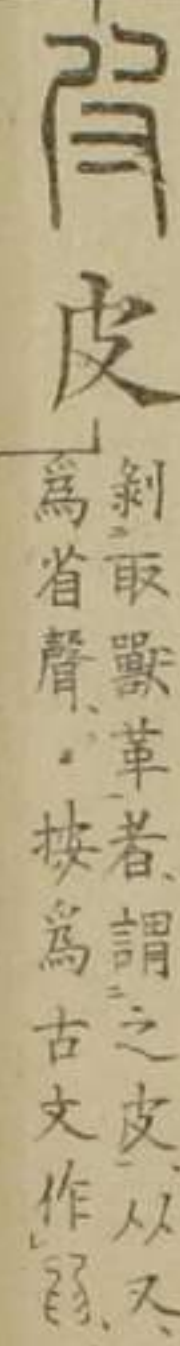 皮
剝取獸革者、謂之皮、从又、
爲省聲、按爲古文作